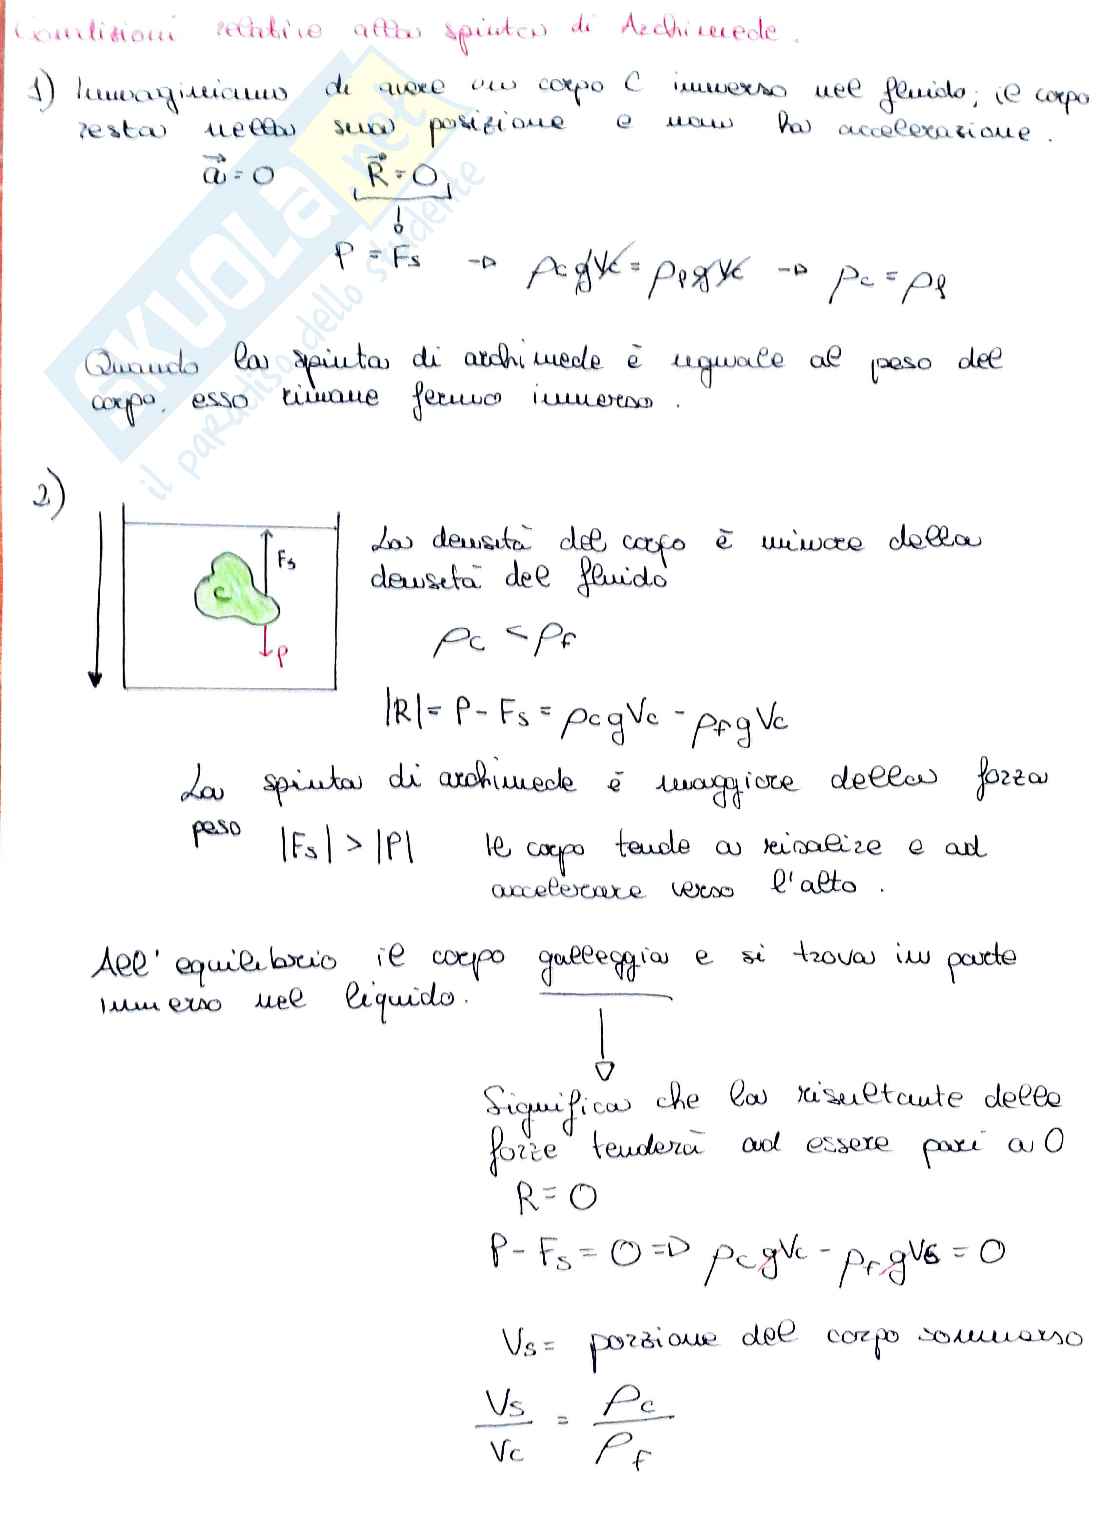 Condizioni relative alla spinta di Archimede.
1) Immaginiamo di avere un corpo C immerso nel fluido; il corpo
resta nella sua posizione e non ha accelerazione.
a⃗ = 0 R⃗ = 0
P = Fs → ρc g Vc = ρf g Vc → ρc = ρf
Quando la spinta di archimede è uguale al peso del
corpo, esso rimane fermo immerso.
2)
Fs
C
P
La densità del corpo è minore della
densità del fluido
ρc < ρf
|R| = P - Fs = ρc g Vc - ρf g Vc
La spinta di archimede è maggiore della forza
peso |Fs| > |P| Il corpo tende a risalire e ad
accelerare verso l'alto.
All'equilibrio il corpo galleggia e si trova in parte
immerso nel liquido.
Significa che la risultante delle
forze tenderà ad essere pari a 0
R = 0
P - Fs = 0 => ρc g Vc - ρf g Vs = 0
Vs = porzione del corpo sommerso
Vs/Vc = ρc/ρf
SKUOLA.net
il paradiso dello studente